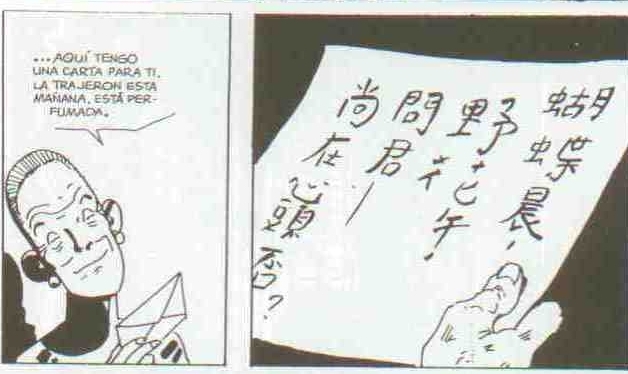 ...AQUÍ TENGO
UNA CARTA PARA TI.
LA TRAJERON ESTA
MAÑANA. ESTÁ PER-
FUMADA.
蝴蝶晨，
野花午，
問君，
尚在心頭否？